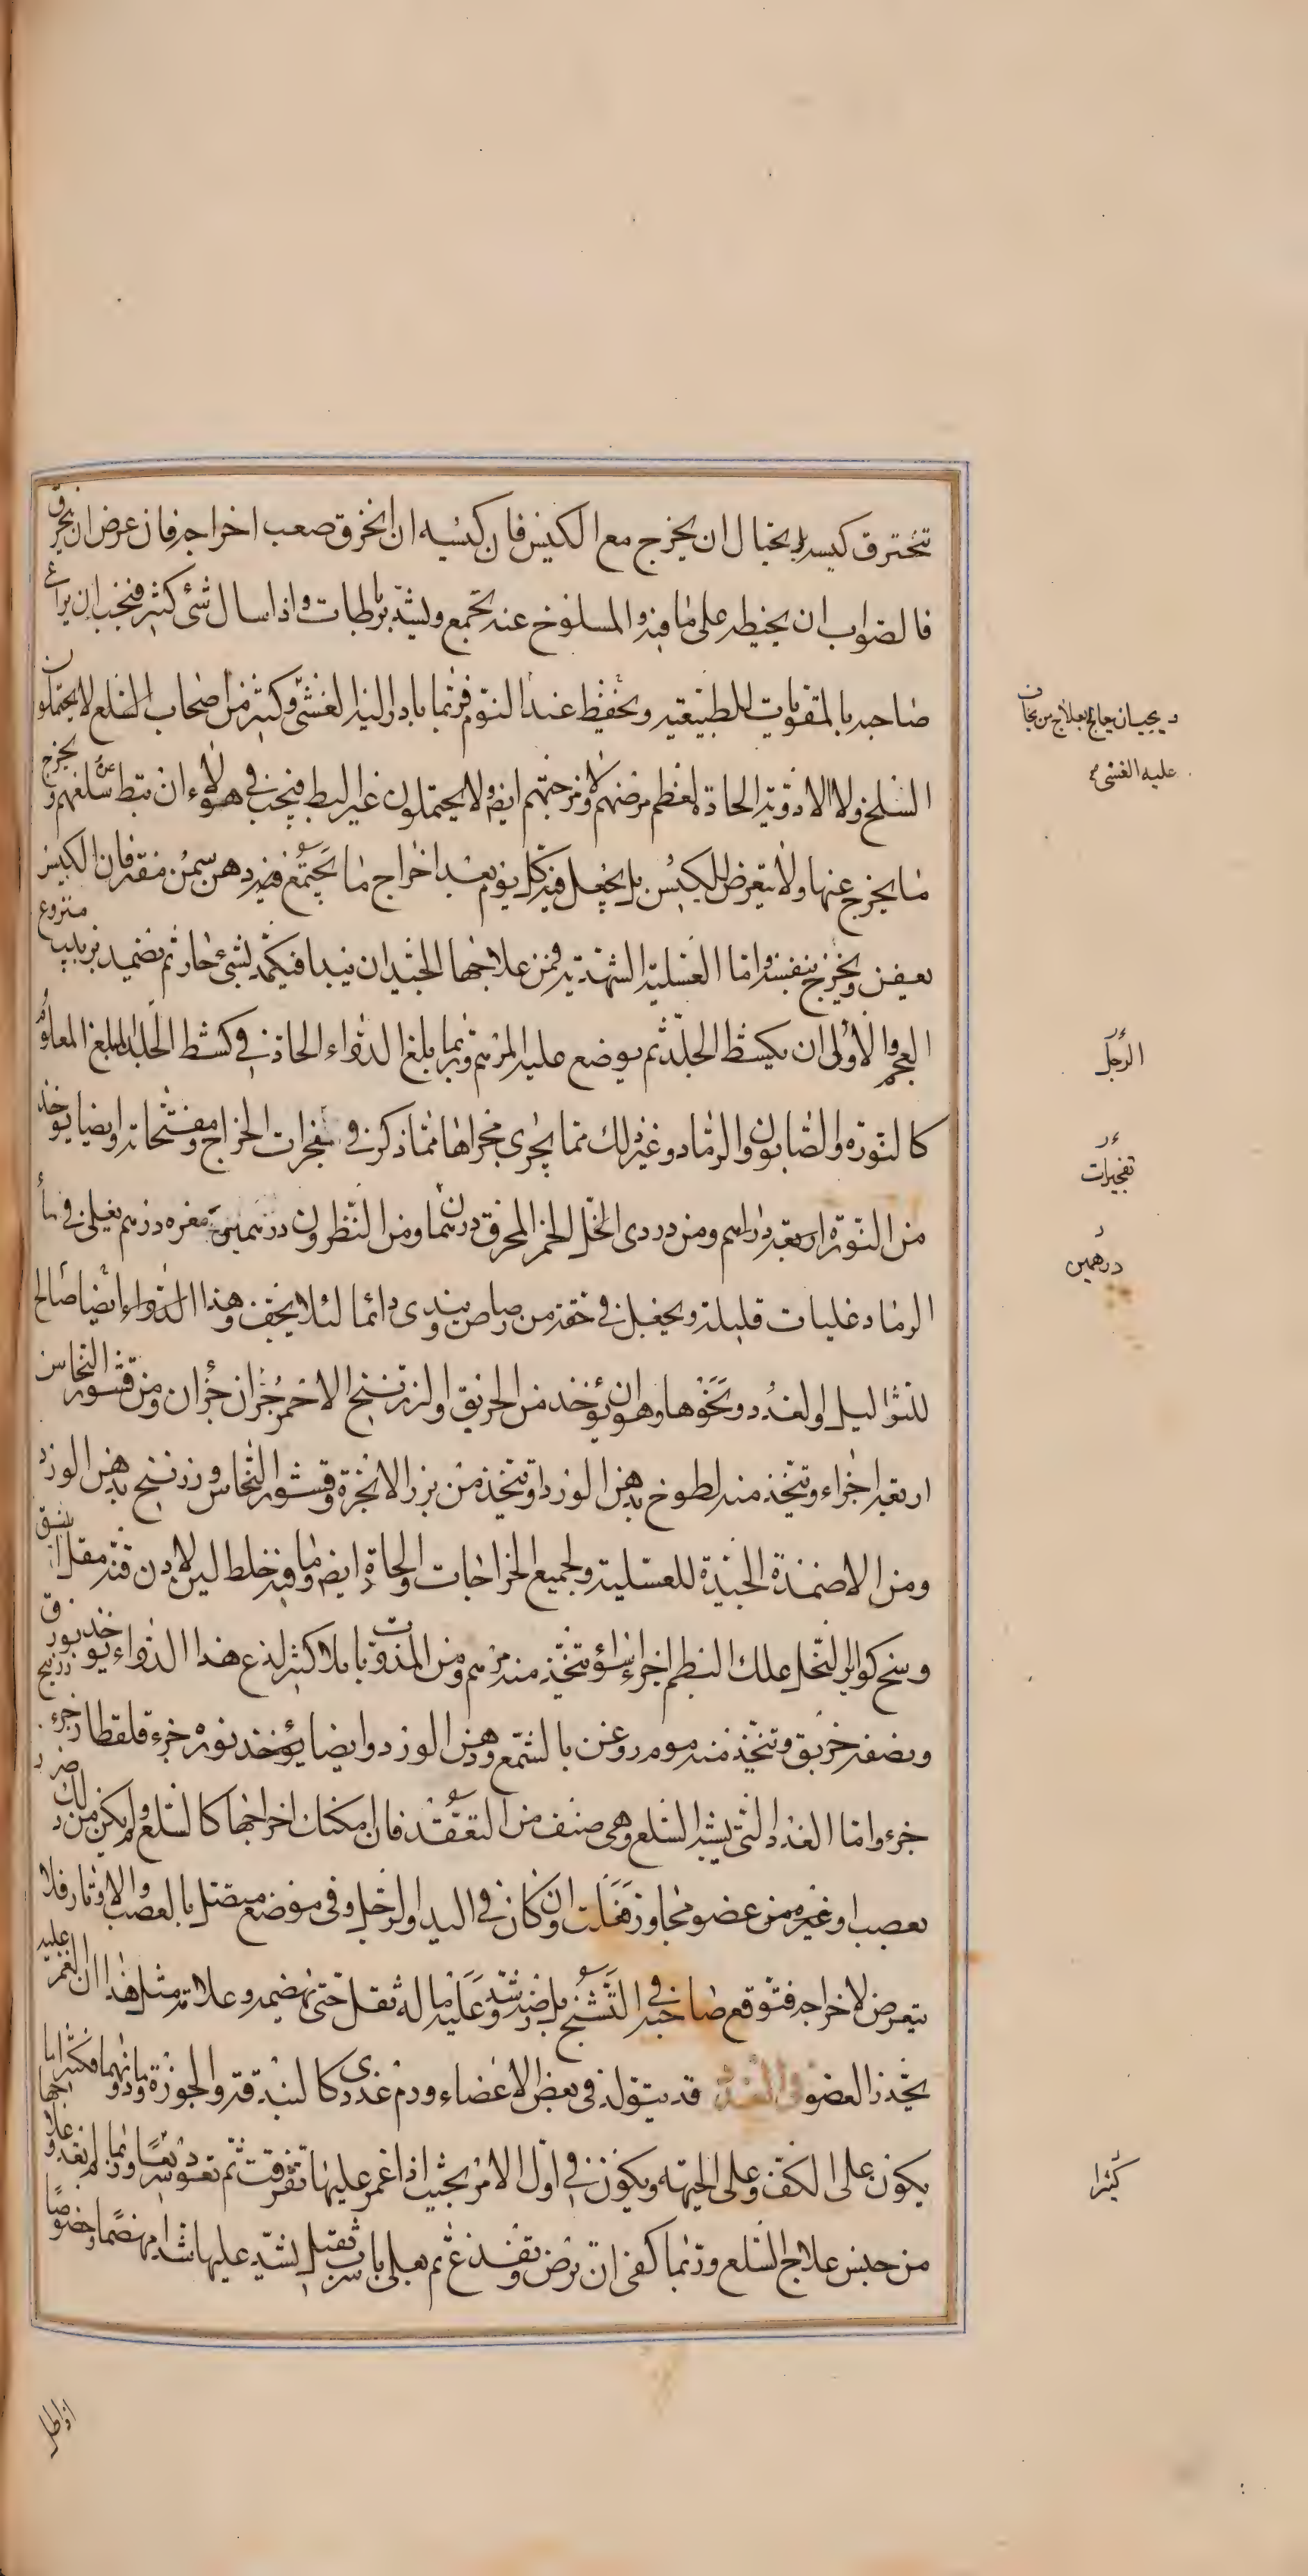 تنخرق كيسه بل يحتال ان يخرج مع الكيس فان كيسه ان انخرق صعب اخراجه فان عرض ان ينخرق
فالصواب ان يخيط على ما فيه والمسلوخ عنه يجمع ويشد برباطات واذا سال شئ كثير فيجب ان يراعى
صاحبه بالمقويات للطبيعة ويحفظ عند النوم فربما بادر اليه الغشى وكثير من اصحاب السلع لا يحتملون
السلخ ولا الادوية الحادة لعظم مرضهم او لمزجتهم ايضا ولا يحتملون غير البط فيجب فى هؤلاء ان تبط سلعهم ويخرج
ما يخرج عنها ولا يتعرض للكيس بل يجعل فيه كل يوم بعد اخراج ما يجتمع فيه دهن سمن مفتر فان الكيس
يعفن ويخرج بنفسه واما العسلية الشهدية فمن علاجها الجيد ان يبدا فيكمد بشئ حار ثم يضمد بزبيب منزوع
العجم والاولى ان يكشط الجلد ثم يوضع عليه المرهم وربما بلغ الدواء الحاد فى كشط الجلد المبلغ المعلوم
كالنورة والصابون والرماد وغير ذلك مما يجرى مجراها مما ذكر فى مفجرات الخراج ومفتحاته وايضا يوخذ
من النورة اربعة دراهم ومن دردى الخل الخمر المحرق درهما ومن النطرون درهمين مغره درهم يغلى فى ماء
الرماد غليات قليلة ويجعل فى حقة من رصاص يندى دائما لئلا يجف وهذا الدواء ايضا صالح
للثواليل والغدد ونحوها وهو ان يؤخذ من الخربق والزرنيخ الاحمر جزان جزان ومن قشور النحاس
اربعة اجزاء وتتخذ منه لطوخ بدهن الورد او تتخذ من بزر الانجرة وقشور النحاس وزرنيخ بدهن الورد
ومن الاضمدة الجيدة للعسلية ولجميع الخراجات والحادة ايضا وما فيه خلط لين لادن قنه مقل اشق
وسخ كواير النحل علك البطم اجزاء سواء تتخذ منه مرهم ومن المذوبات بلا كثير لذع هذا الدواء يوخذ بورق زرنيخ
ونصفه خربق وتتخذ منه موم روغن بالشمع ودهن الورد وايضا يؤخذ نوره جزء قلقطار جزء
جزء واما الغدد التى يشبه السلع وهى صنف من التعقد فان امكنك اخراجها كالسلع ولم يكن من ذلك ضرر
بعصب او غيره من عضو مجاوز فعلت وان كان فى اليد او الرجل وفى موضع متصل بالعصب والاوتار فلا
يتعرض لاخراجه فتوقع صاحبه فى التشنج بل رضه وشد عليه ما له ثقل حتى نهضمه وعلامة مثل هذا ان الغمز عليه
يخدر العضو فى الغدد قد يتولد فى بعض الاعضاء ورم غددى كالبندقة والجوزة وما دونهما فكثيرا ما
يكون على الكف وعلى الجبهة ويكون فى اول الامر بحيث اذا غمز عليها تفرقت ثم تعود سريعا وربما لم تعد وعلاجها
من جنس علاج السلع وربما كفى ان ترض وتفدغ ثم يعلى باسرب ثقيل يشد عليها شدا مهضما وخصوصا
د يجب ان يعالج بعلاج من يخاف
عليه الغشى
الرجل
تفجيرات
درهمين
كثيرا
اذا طلى